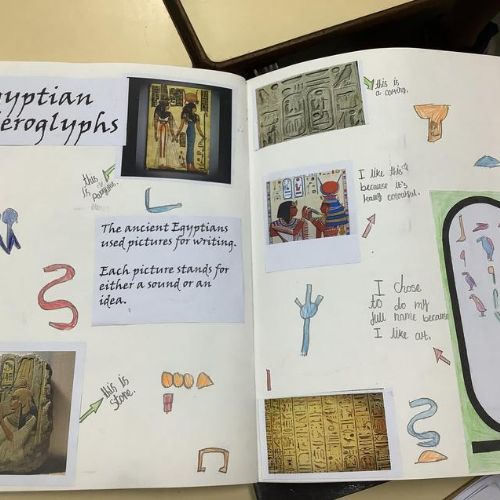 gyptian
eroglyphs
this
is papyrus.
The ancient Egyptians
used pictures for writing.
Each picture stands for
either a sound or an
idea.
this is
stone.
this is
a carving.
I like this
because it's
really colourful.
I chose
to do my
full name because
I like art.